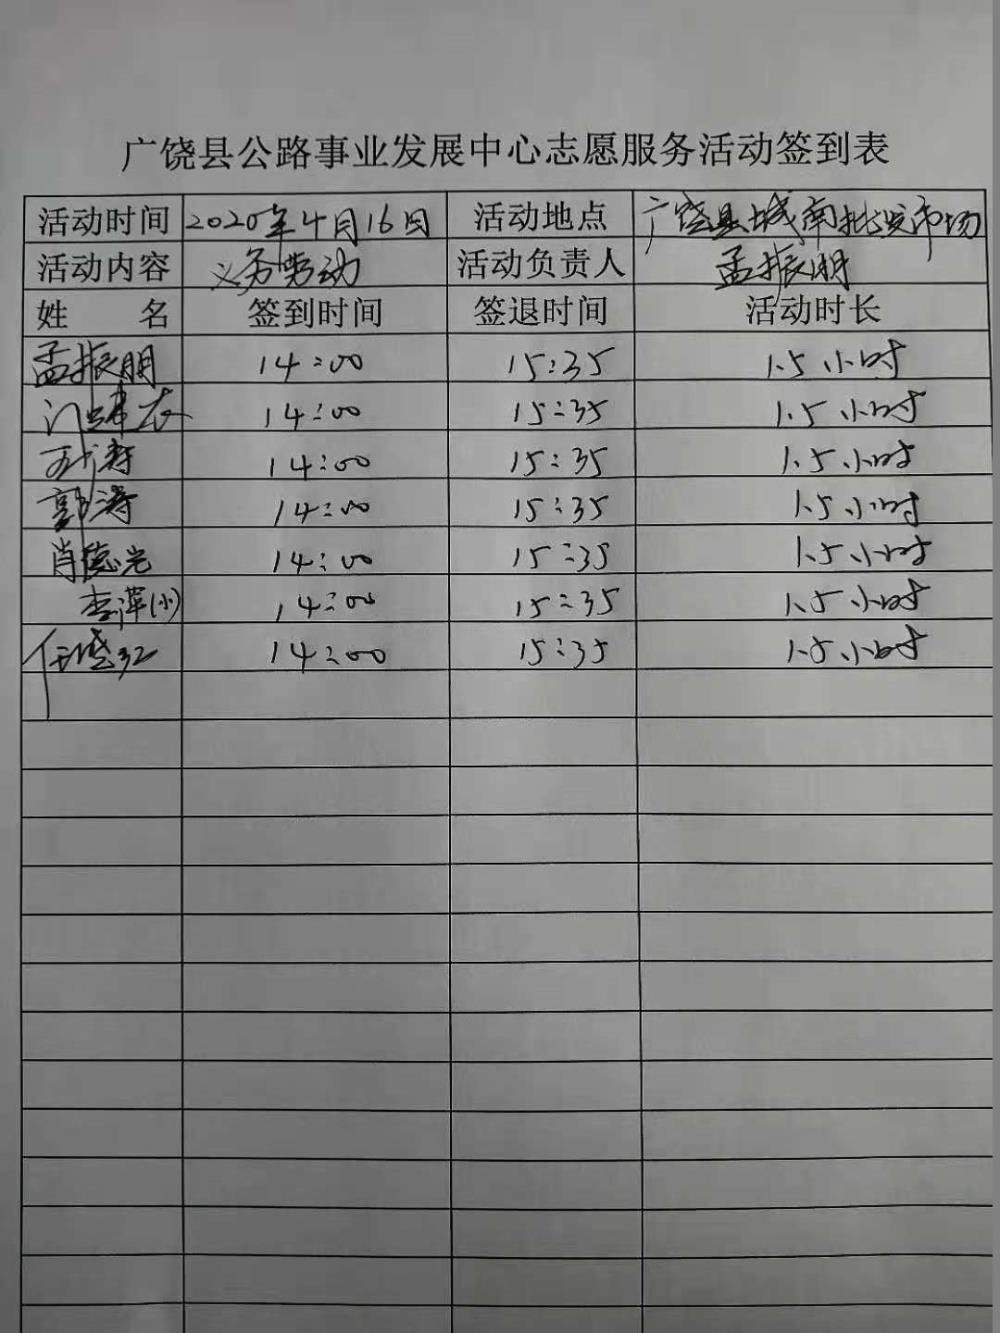 广饶县公路事业发展中心志愿服务活动签到表
活动时间 2020年4月16日 活动地点 广饶县城南批发市场
活动内容 义务劳动 活动负责人 孟振明
姓 名 签到时间 签退时间 活动时长
孟振明 14:00 15:35 1.5小时
14:00 15:35 1.5小时
14:00 15:35 1.5小时
郭涛 14:00 15:35 1.5小时
肖德光 14:00 15:35 1.5小时
李萍(小) 14:00 15:35 1.5小时
14:00 15:35 1.5小时